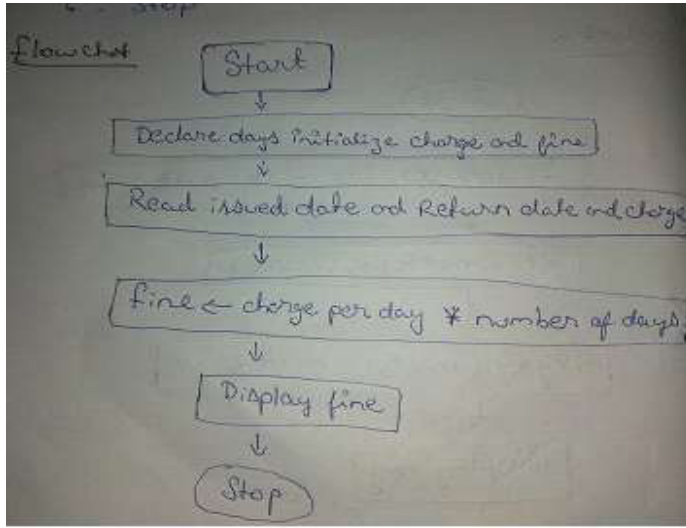 Stop
flowchat
Start
Declare days initialize charge and fine
Read issued date and Return date and charge
fine ← charge per day * number of days.
Display fine
Stop